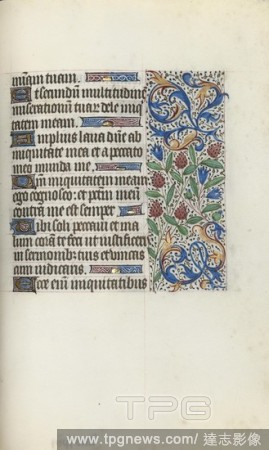 miam tuam.
Et secundum multitudine
miserationum tuar dele iniq
tatem meam.
Amplius lava me ab
iniquitate mea et a peccato
meo munda me.
Quoniam iniquitatem meam
ego cognosco: et pctm meu
contra me est semper
Tibi soli peccavi et ma
lum coram te feci ut iustificeris
in sermonib tuis et vincas
cum iudicaris.
Ecce eim iniquitatibus
TPG
www.tpgnews.com / 達志影像